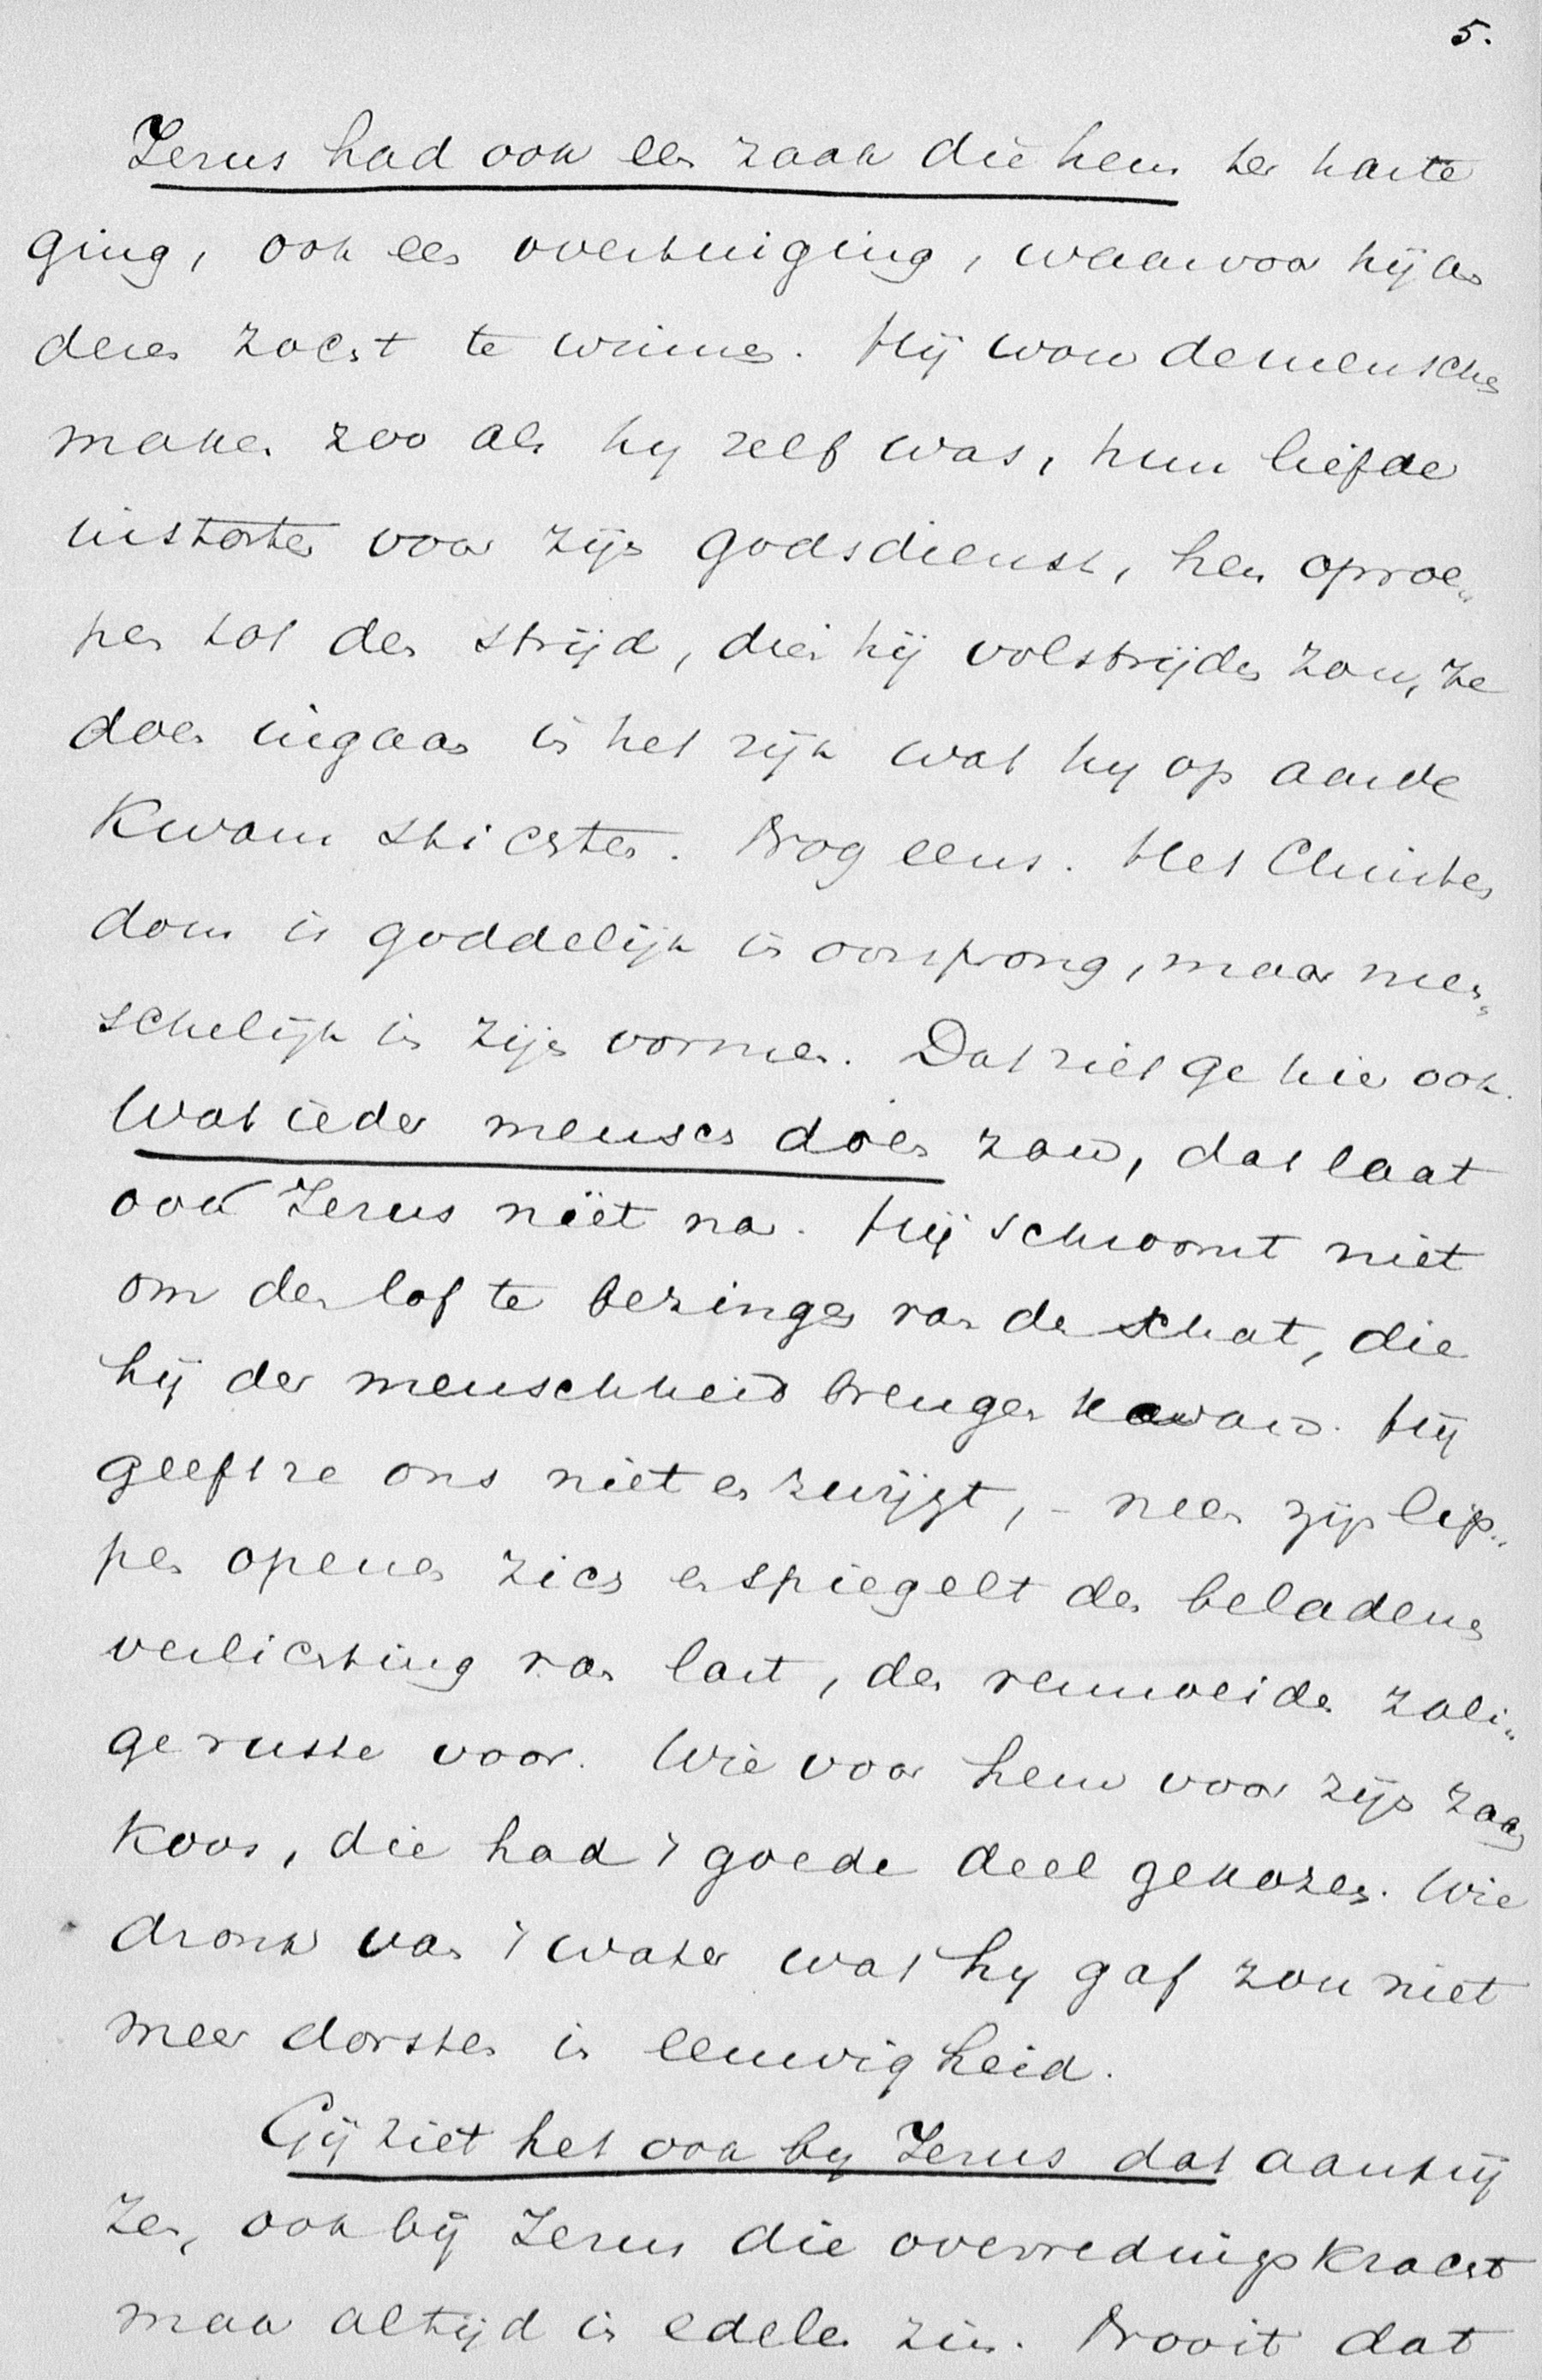 5.
Jezus had ook een zaak die hem ter harte
ging, ook een overtuiging, waarvoor hij an
deren zocht te winnen. Hij wou de menschen
maken zoo als hy zelf was, hun liefde
instorten voor zijn godsdienst, hen oproe„
pen tot den strijd, dien hij volstrijden zou, ze
doen ingaan in het rijk wat hy op aarde
kwam stichten. Nog eens. Het Christen
dom is goddelijk in oorsprong, maar men„
schelijk in zijn vormen. Dat ziet ge hier ook.
Wat ieder mensch doen zou, dat laat
ook Jezus niet na. Hij schroomt niet
om den lof te bezingen van de schat, die
hij der menschheid brengen kwam. Hij
geeft ze ons niet en zwijgt, – neen zijn lip„
pen openen zich en spiegelt den beladene
verlichting van last, den vermoeiden zali„
ge ruste voor. Wie voor hem voor zijn zaak
koos, die had 't goede deel gekozen. Wie
dronk van 't water wat hy gaf zou niet
meer dorsten in eeuwigheid.
Gij ziet het ook by Jezus dat aanprij
zen, ook bij Jezus die overredingskracht
maar altijd in edelen zin. Nooit dat